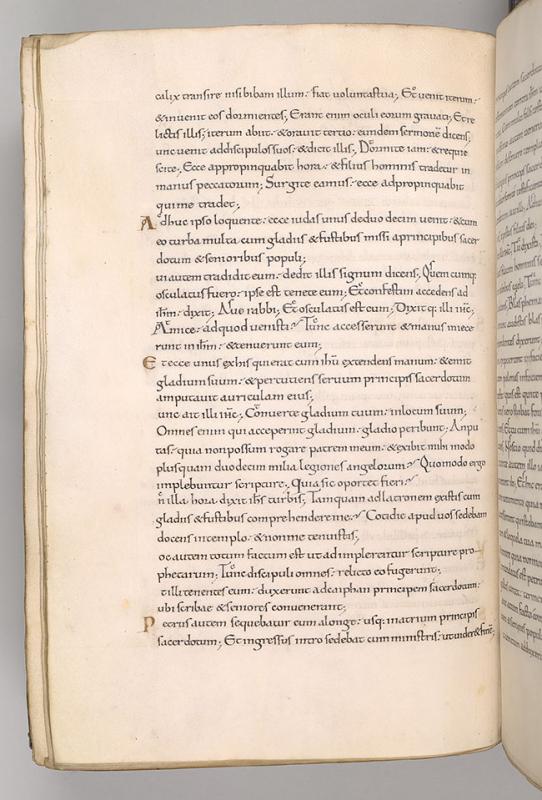 calix transire nisi bibam illum· fiat voluntas tua; Et venit iterum·
& invenit eos dormientes; Erant enim oculi eorum gravati; Et re
lictis illis; iterum abiit· & oravit tertio· eundem sermonē dicens;
unc venit ad discipulos suos· & dicit illis; Dormite iam· & requie
scite; Ecce appropinquabit hora· & filius hominis tradetur in
manus peccatorum; Surgite eamus· ecce adpropinquabit
qui me tradet;
Adhuc ipso loquente· ecce iudas unus de duodecim venit· & cum
eo turba multa cum gladiis & fustibus missi a principibus sacer
dotum & senioribus populi;
ui autem tradidit eum· dedit illis signum dicens; Quemcumq;
osculatus fuero· ipse est tenete eum; Et confestim accedens ad
ihm̄· dixit; Ave rabbi; Et osculatus est eum; Dixit q; illi ih̄c;
Amice· ad quod venisti? Tunc accesserunt & manus iniece
runt in ihm̄· & tenuerunt eum;
Et ecce unus ex his qui erat cum ihū extendens manum· & emit
gladium suum· & percutiens servum principis sacerdotum
amputavit auriculam eius;
unc ait illi ih̄c; Converte gladium tuum· in locum suum;
Omnes enim qui acceperint gladium· gladio peribunt; An pu
tas· quia non possum rogare patrem meum· & exibit mihi modo
plus quam duodecim milia legiones angelorum? Quomodo ergo
implebuntur scripturę; Quia sic oportet fieri?
n̄ illa hora dixit ihs̄ turbis; Tamquam ad latronem existis cum
gladiis & fustibus comprehendere me? Cotidie apud vos sedebam
docens in templo· & non me tenuistis;
oc autem totum factum est ut adimplerentur scripturę pro
phetarum; Tunc discipuli omnes· relicto eo fugerunt;
t illi tenentes eum· duxerunt ad caiphan principem sacerdotum·
ubi scribae & seniores convenerant;
Petrus autem sequebatur eum a longe· usq; in atrium principis
sacerdotum; Et ingressus intro sedebat cum ministris· ut vider& finē;